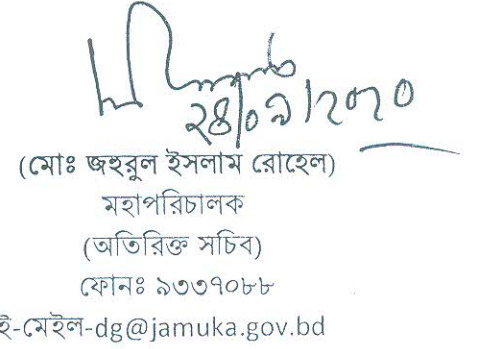 ২৪/০৯/২০২০
(মোঃ জহুরুল ইসলাম রোহেল)
মহাপরিচালক
(অতিরিক্ত সচিব)
ফোনঃ ৯৩৩৭০৮৮
ই-মেইল-dg@jamuka.gov.bd